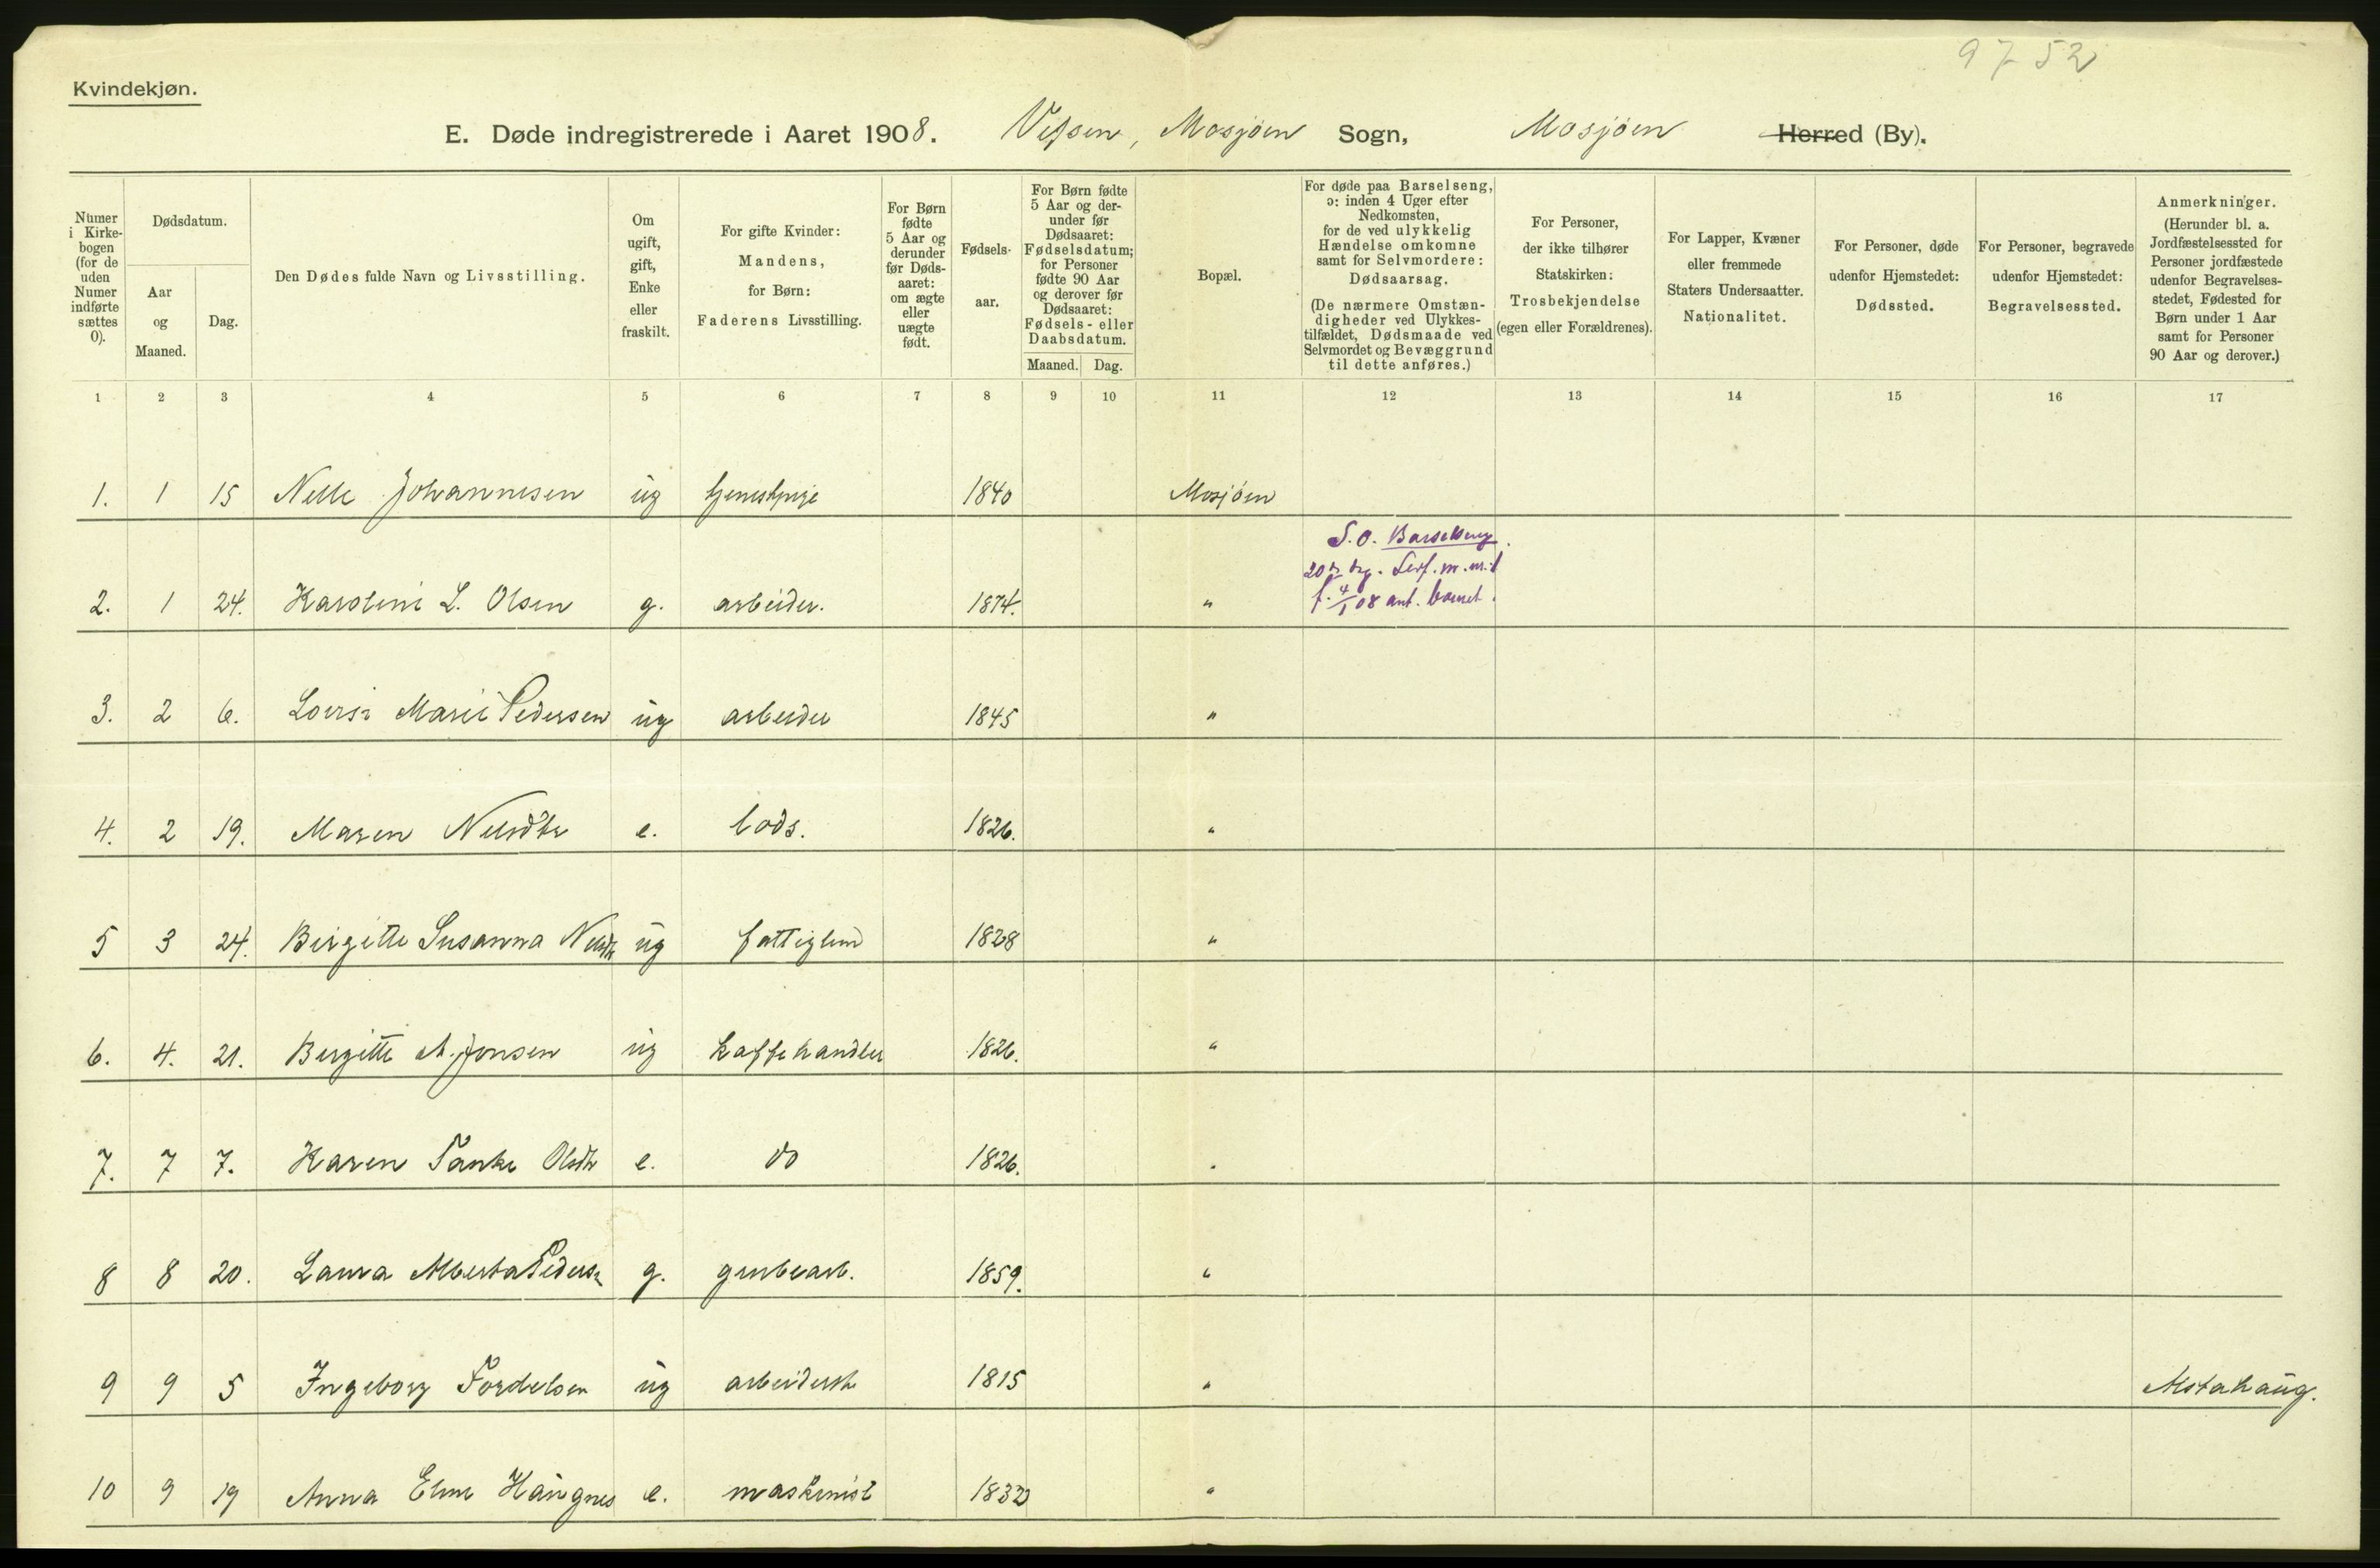 9752
Kvindekjøn.
E. Døde indregistrerede i Aaret 1908. Vefsen, Mosjøen Sogn, Mosjøen Herred (By).
Numer i Kirke-bogen (for de uden Numer indførte sættes 0).
Dødsdatum.
Aar og Maaned.
Dag.
Den Dødes fulde Navn og Livsstilling.
Om ugift, gift, Enke eller fraskilt.
For gifte Kvinder: Mandens, for Børn: Faderens Livsstilling.
For Børn fødte 5 Aar og derunder før Døds-aaret: om ægte eller uægte født.
Fødsels-aar.
For Børn fødte 5 Aar og der-under før Dødsaaret: Fødselsdatum; for Personer fødte 90 Aar og derover før Dødsaaret: Fødsels- eller Daabsdatum.
Maaned. Dag.
Bopæl.
For døde paa Barselseng, ɔ: inden 4 Uger efter Nedkomsten, for de ved ulykkelig Hændelse omkomne samt for Selvmordere: Dødsaarsag. (De nærmere Omstæn-digheder ved Ulykkes-tilfældet, Dødsmaade ved Selvmordet og Bevæggrund til dette anføres.)
For Personer, der ikke tilhører Statskirken: Trosbekjendelse (egen eller Forældrenes).
For Lapper, Kvæner eller fremmede Staters Undersaatter. Nationalitet.
For Personer, døde udenfor Hjemstedet: Dødssted.
For Personer, begravede udenfor Hjemstedet: Begravelsessted.
Anmerkninger. (Herunder bl. a. Jordfæstelsessted for Personer jordfæstede udenfor Begravelses-stedet, Fødested for Børn under 1 Aar samt for Personer 90 Aar og derover.)
1 2 3 4 5 6 7 8 9 10 11 12 13 14 15 16 17
1. 1 15 Nelle Johannesen ug tjenestpige 1840 Mosjøen
S.O. Barselseng.
2. 1 24. Karoline L. Olsen g. arbeider. 1874. "
f. 4/1 08 ant. baaret.
3. 2 6. Lovise Marie Pedersen ug arbeider 1845 "
4. 2 19. Maren Nilsdtr e. lods. 1826. "
5 3 24. Birgitte Susanna Nilsdtr ug fattiglem 1828 "
6. 4. 21. Birgitte A. Jonsen ug kaffehandler 1826. "
7. 7 7. Karen Tanke Olsdtr e. do 1826. "
8 8 20. Laura Alberta Peders. g. grubearb. 1859. "
9 9 5 Ingeborg Tordelsen ug arbeiderske 1815 " Alstahaug.
10 9 19 Anna Eline Haugnes e. maskinist 1832 "